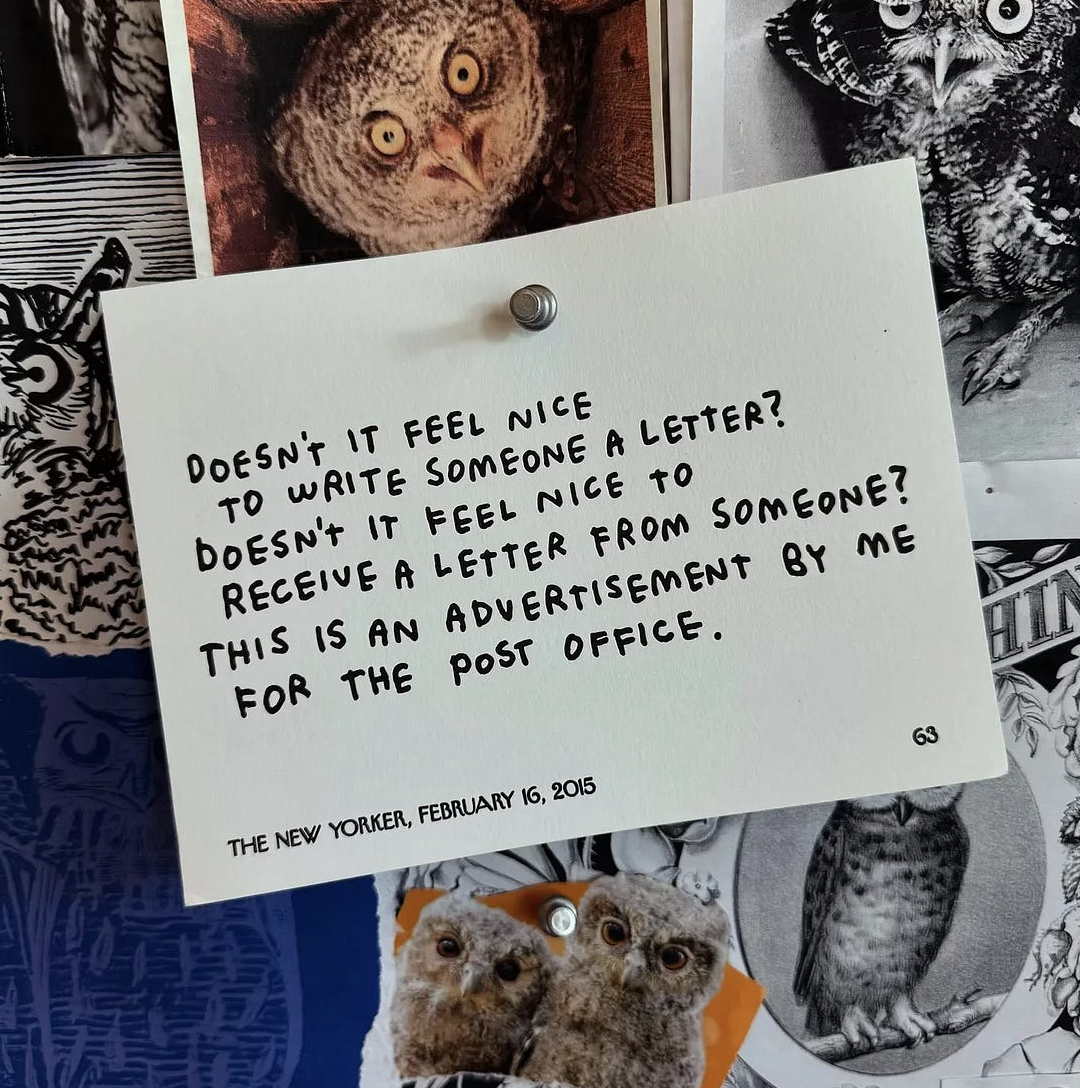 DOESN'T IT FEEL NICE
TO WRITE SOMEONE A LETTER?
DOESN'T IT FEEL NICE TO
RECEIVE A LETTER FROM SOMEONE?
THIS IS AN ADVERTISEMENT BY ME
FOR THE POST OFFICE.
63
THE NEW YORKER, FEBRUARY 16, 2015